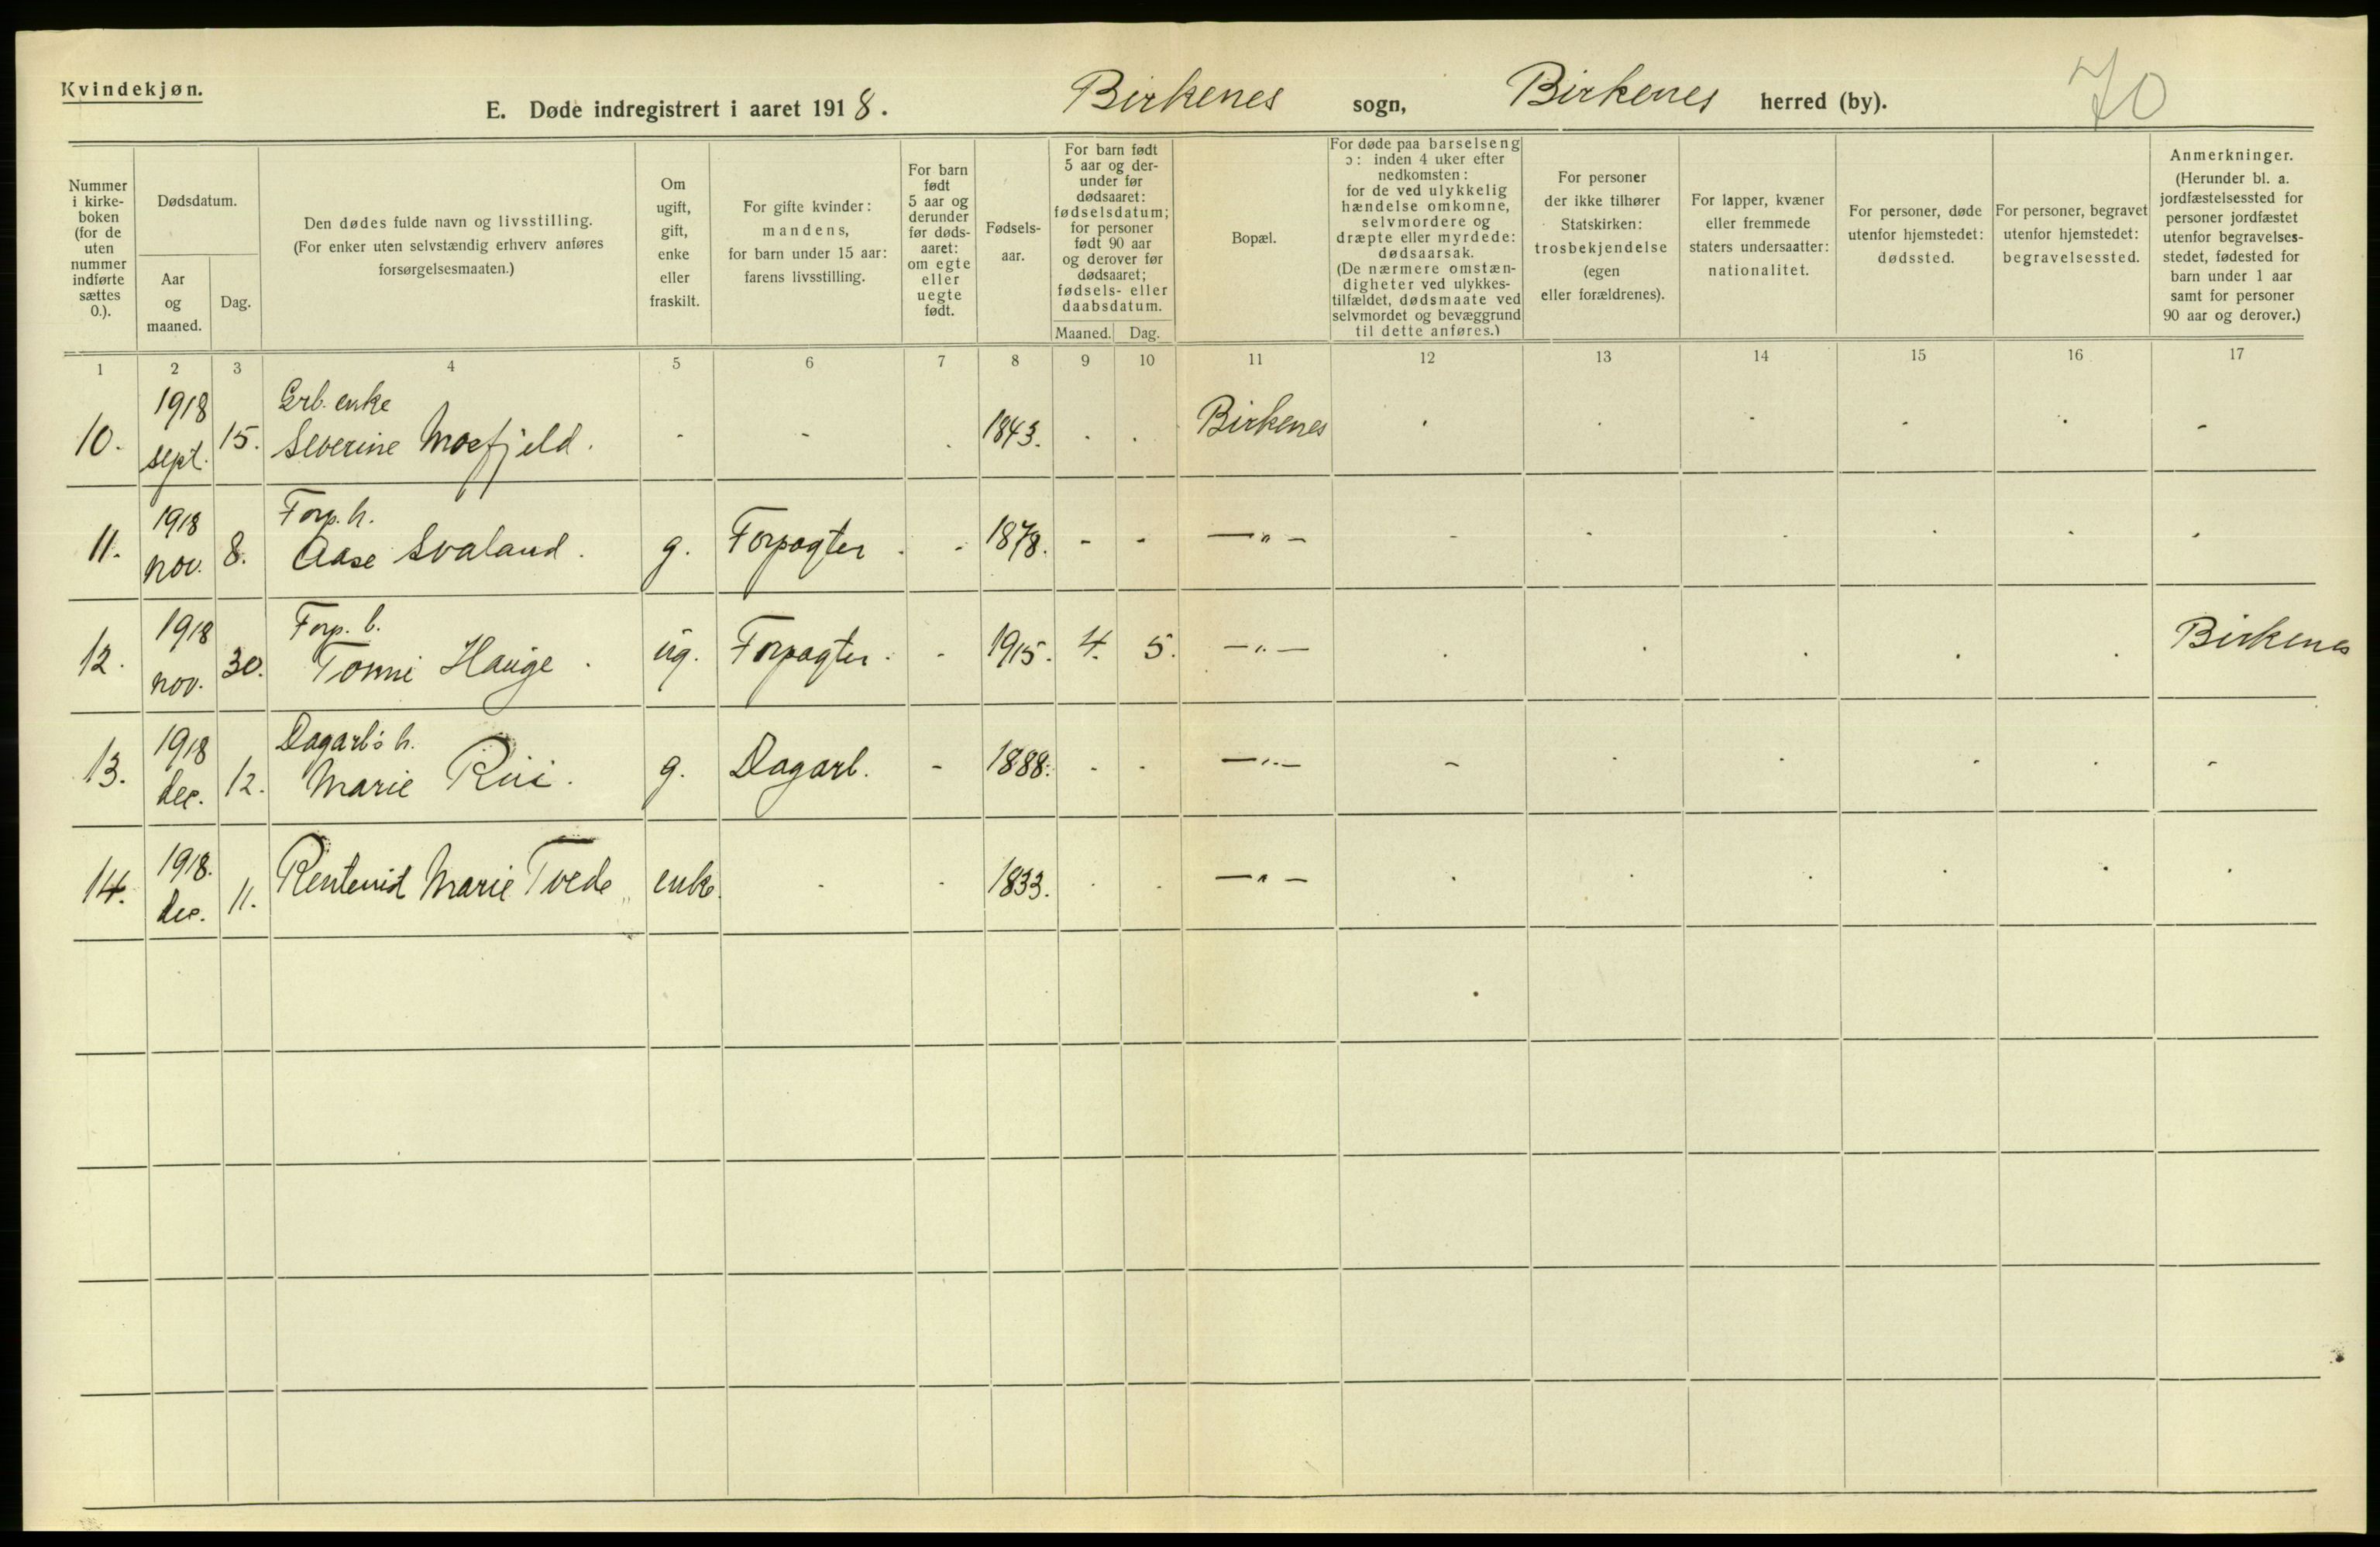 Kvindekjøn.
E. Døde indregistrert i aaret 1918. Birkenes sogn, Birkenes herred (by). 70
Nummer
i kirke-
boken
(for de
uten
nummer
indførte
sættes
0.).
Dødsdatum.
Aar
og
maaned.
Dag.
Den dødes fulde navn og livsstilling.
(For enker uten selvstændig erhverv anføres
forsørgelsesmaaten.)
Om
ugift,
gift,
enke
eller
fraskilt.
For gifte kvinder:
mandens,
for barn under 15 aar:
farens livsstilling.
For barn
født
5 aar og
derunder
før døds-
aaret:
om egte
eller
uegte
født.
Fødsels-
aar.
For barn født
5 aar og der-
under før
dødsaaret:
fødselsdatum;
for personer
født 90 aar
og derover før
dødsaaret;
fødsels- eller
daabsdatum.
Maaned. Dag.
Bopæl.
For døde paa barselseng
ɔ: inden 4 uker efter
nedkomsten:
for de ved ulykkelig
hændelse omkomne,
selvmordere og
dræpte eller myrdede:
dødsaarsak.
(De nærmere omstæn-
digheter ved ulykkes-
tilfældet, dødsmaate ved
selvmordet og bevæggrund
til dette anføres.)
For personer
der ikke tilhører
Statskirken:
trosbekjendelse
(egen
eller forældrenes).
For lapper, kvæner
eller fremmede
staters undersaatter:
nationalitet.
For personer, døde
utenfor hjemstedet:
dødssted.
For personer, begravet
utenfor hjemstedet:
begravelsessted.
Anmerkninger.
(Herunder bl. a.
jordfæstelsessted for
personer jordfæstet
utenfor begravelses-
stedet, fødested for
barn under 1 aar
samt for personer
90 aar og derover.)
1 2 3 4 5 6 7 8 9 10 11 12 13 14 15 16 17
1918 Grb. enke
10. sept. 15. Severine Moefjeld. - - . 1843. . . Birkenes . . - - . -
1918 Forp. h.
11. nov. 8. Aase Svaland. g. Forpagter. - 1878. - - —"— - . - . . .
1918 Forp. b.
12. nov. 30. Tomi Hauge. ug. Forpagter. - 1915. 4. 5. —"— . . . . . Birkenes
1918 Dagarb's h.
13. dec. 12. Marie Rui. g. Dagarb. - 1888. - - —"— - . . . . -
1918.
14. dec. 11. Marie Tvede enke. . . 1833. . . —"— . . . . . .